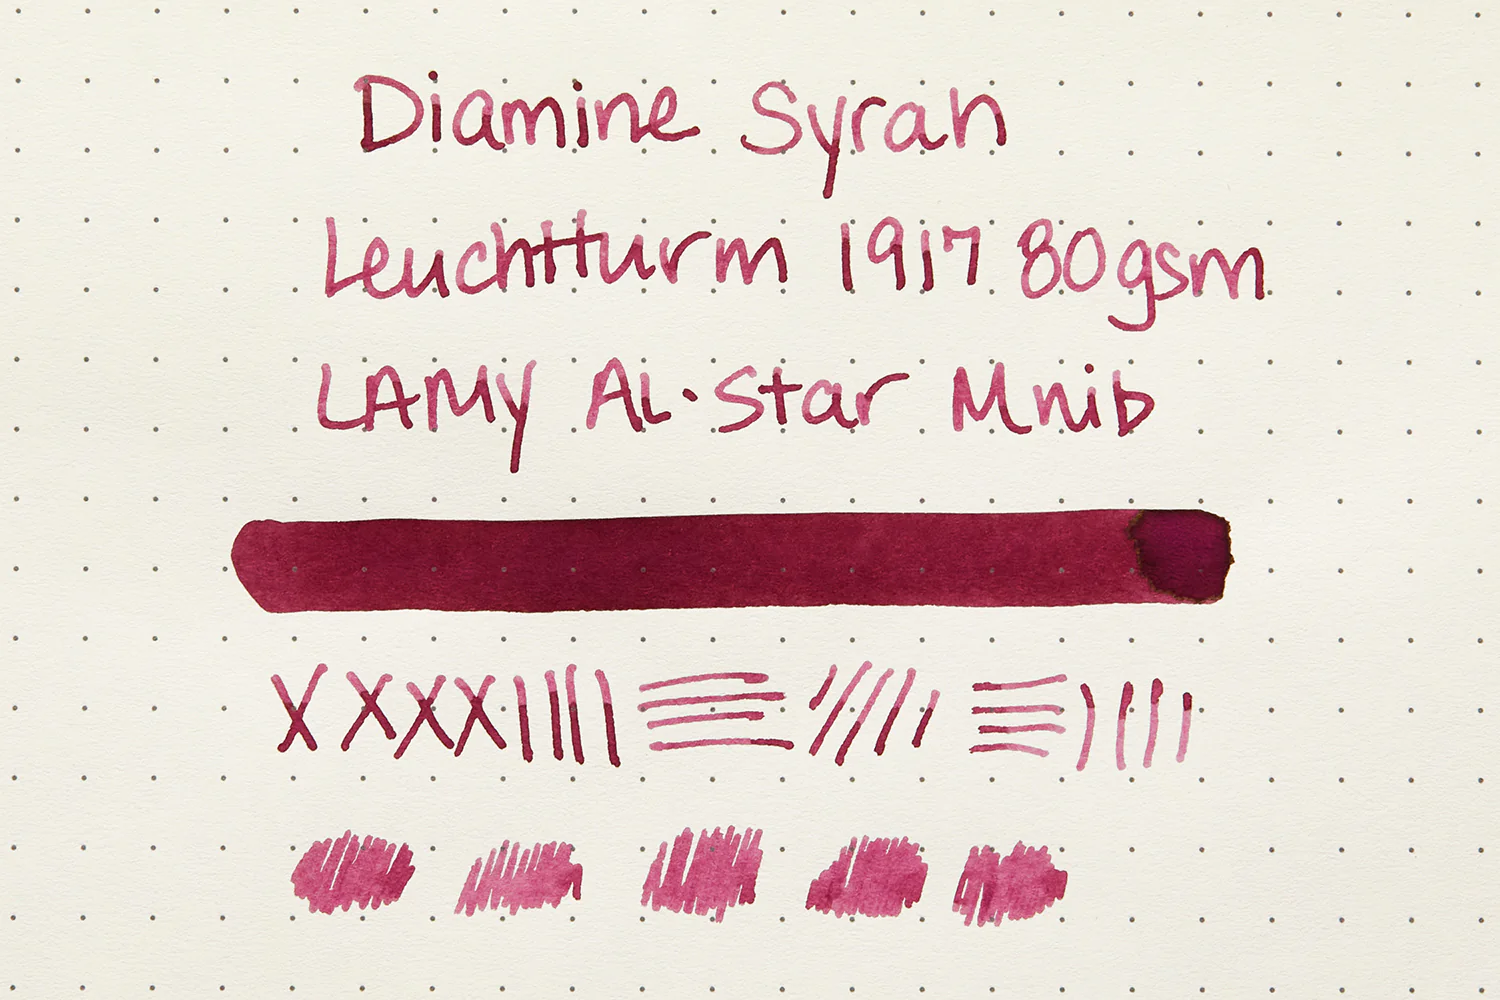 Diamine Syrah
Leuchtturm 1917 80gsm
LAMY AL·Star M nib